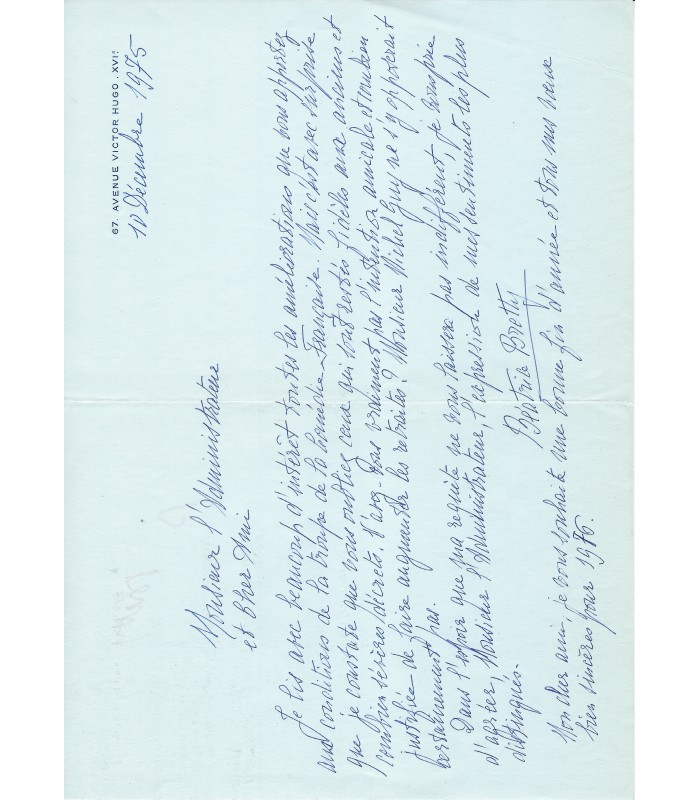 67. AVENUE VICTOR HUGO. XVIe
10 Décembre 1975
Monsieur l'Administrateur
et Cher Ami
Je lis avec beaucoup d'intérêt toutes les améliorations que vous apportez
aux conditions de la troupe de la Comédie-Française. Mais c'est avec surprise
que je constate que vous oubliez ceux qui sont restés fidèles aux anciens et
combien désirés décrets. N'avez-vous vraiment pas l'intention amicale et combien
justifiée de faire augmenter les retraites? Monsieur Michel Guy ne s'y opposerait
certainement pas.
Dans l'espoir que ma requête ne vous laissera pas indifférent, je vous prie
d'agréer, Monsieur l'Administrateur, l'expression de mes sentiments les plus
distingués.
Béatrice Bretty
Mon cher ami, je vous souhaite une bonne fin d'année et tous mes vœux
bien sincères pour 1976.